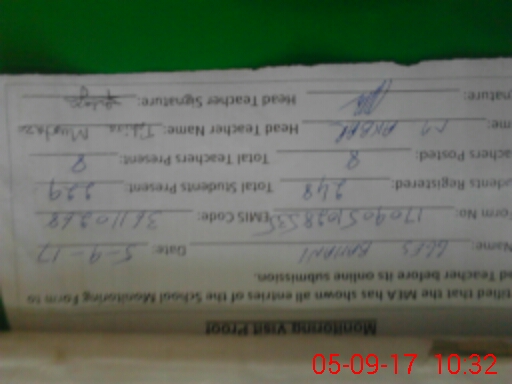 Monitoring Visit Proof
tified that the MEA has shown all entries of the School Monitoring Form to
ad Teacher before its online submission.
Name: GGES Date: 5-9-17
Form No: EMIS Code:
udents Registered: 248 Total Students Present: 229
achers Posted: 8 Total Teachers Present: 8
me: AKBAR Head Teacher Name: Tahira Mumtaz
nature: Head Teacher Signature:
05-09-17 10:32